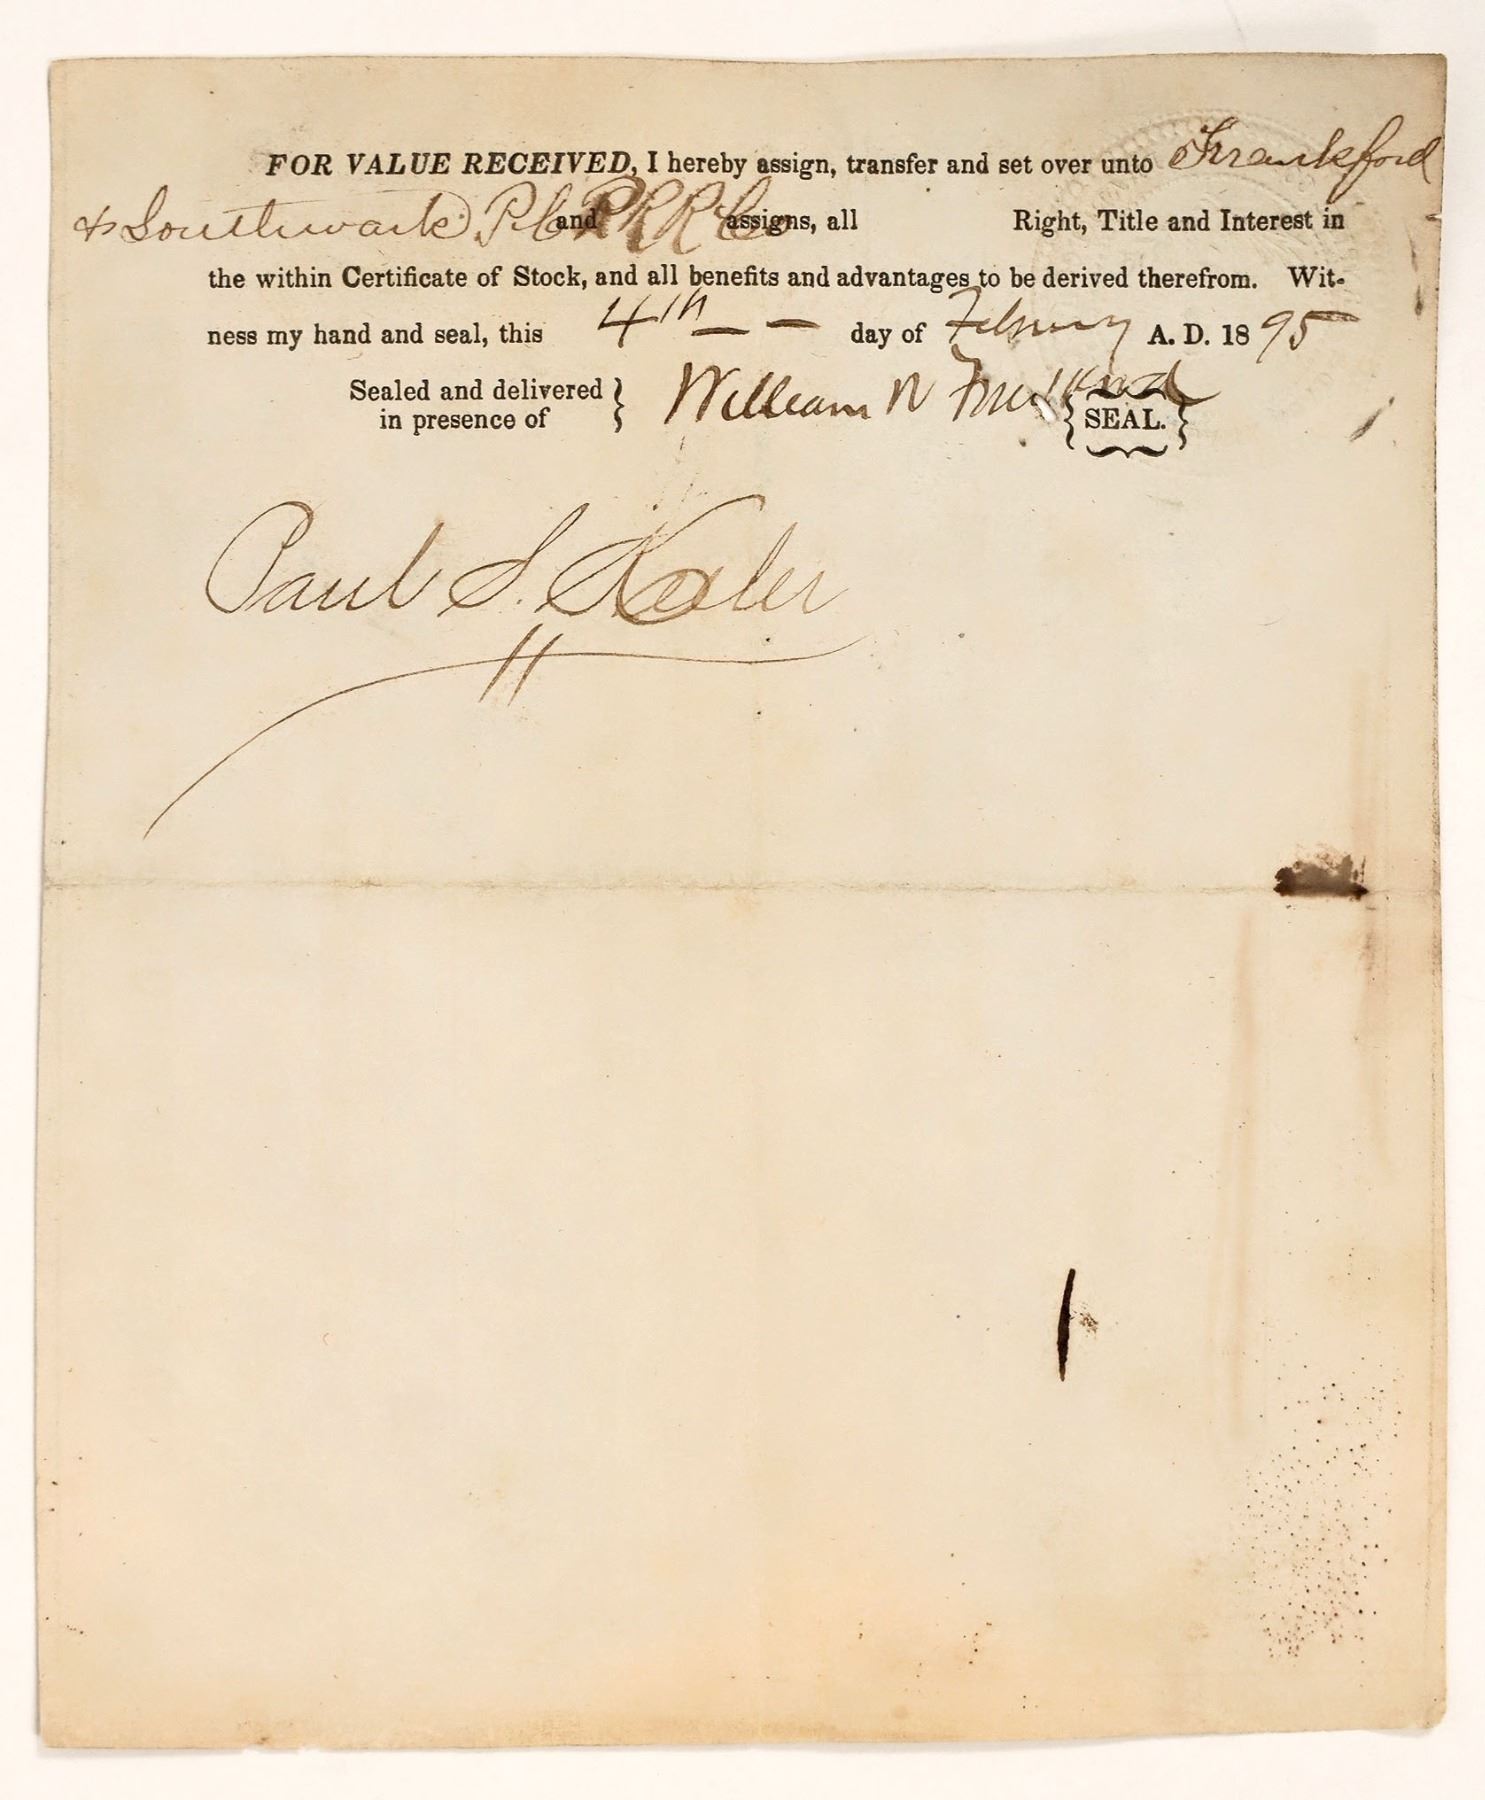 FOR VALUE RECEIVED, I hereby assign, transfer and set over unto Frankford
& Southwark P. C. P. R R Co and assigns, all Right, Title and Interest in
the within Certificate of Stock, and all benefits and advantages to be derived therefrom. Wit-
ness my hand and seal, this 4th — — day of February A. D. 1895
Sealed and delivered
in presence of } William W { SEAL. }
Paul S.